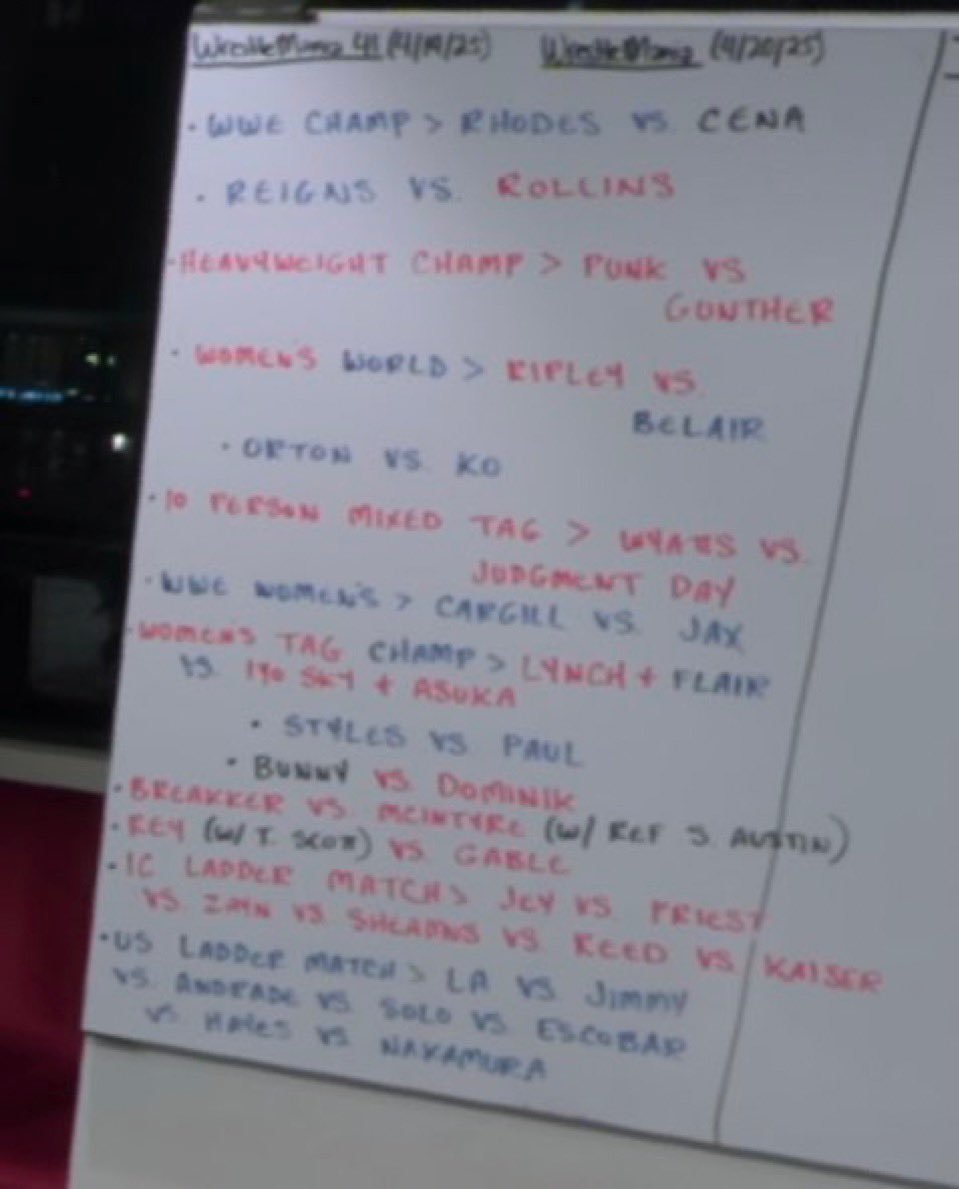 WrestleMania 41 (4/19/25) WrestleMania (4/20/25)
• WWE CHAMP > RHODES VS. CENA
• REIGNS VS. ROLLINS
• HEAVYWEIGHT CHAMP > PUNK VS
GUNTHER
• WOMEN'S WORLD > RIPLEY VS.
BELAIR
• ORTON VS. KO
• 10 PERSON MIXED TAG > WYATTS VS.
JUDGMENT DAY
• WWE WOMEN'S > CARGILL VS. JAX
• WOMEN'S TAG CHAMP > LYNCH + FLAIR
VS. IYO SKY + ASUKA
• STYLES VS PAUL
• BUNNY VS. DOMINIK
• BREAKKER VS. MCINTYRE (W/ REF S. AUSTIN)
• REY (W/ T. SCOTT) VS. GABLE
• IC LADDER MATCH > JEY VS. PRIEST
VS. ZAYN VS. SHEAMUS VS. REED VS. KAISER
• US LADDER MATCH > LA VS. JIMMY
VS. ANDRADE VS. SOLO VS. ESCOBAR
VS. HAYES VS. NAKAMURA